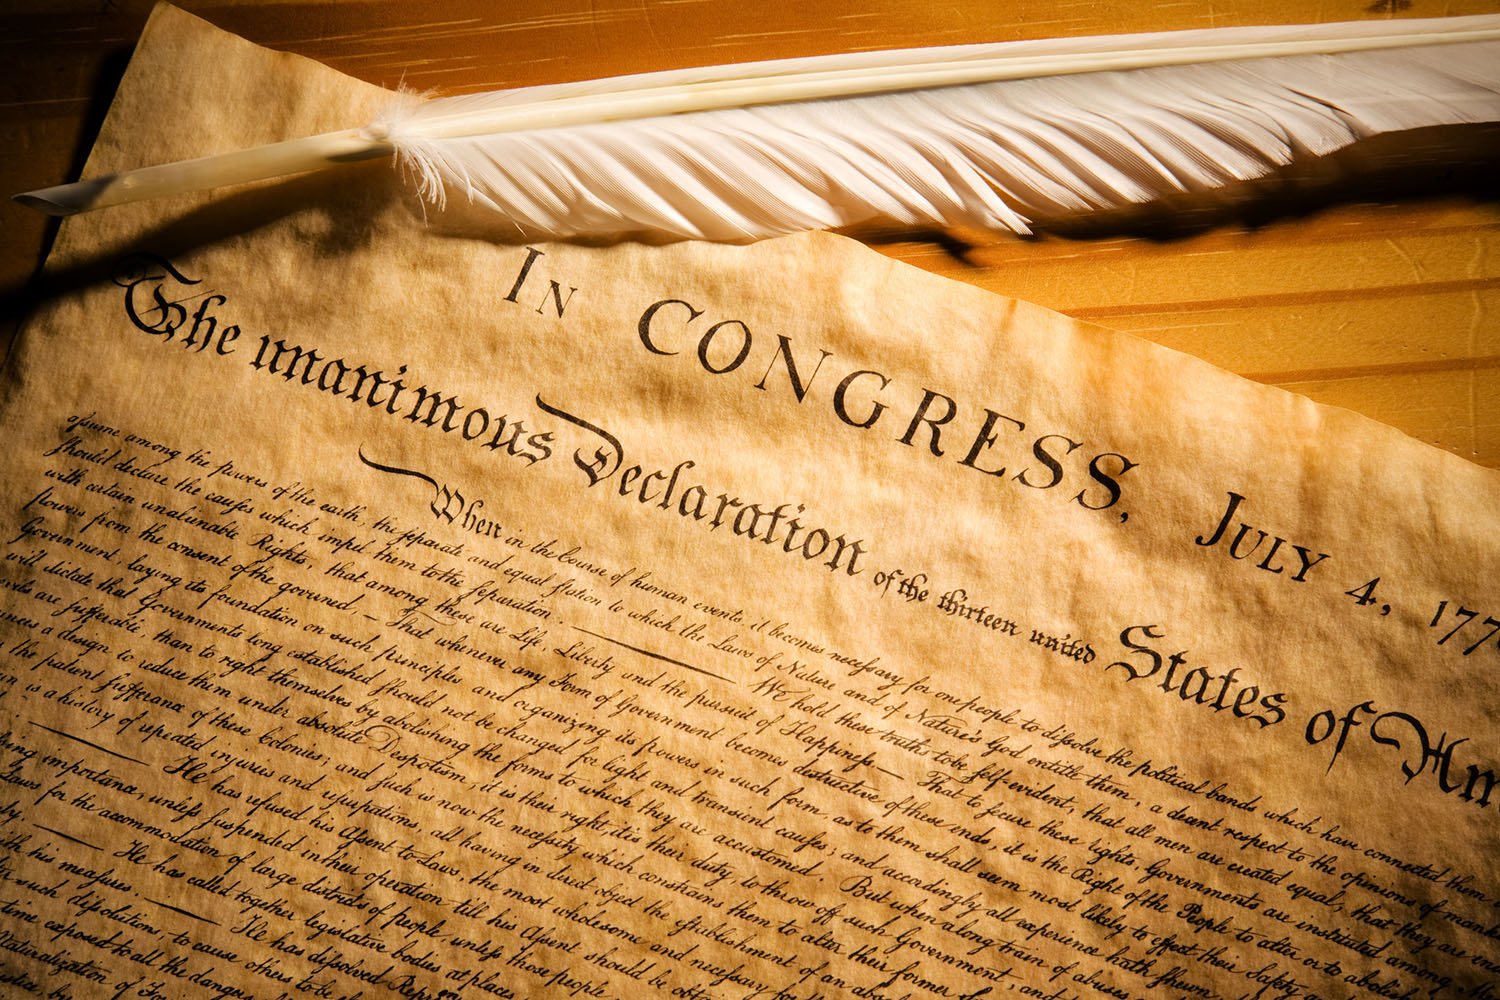 In CONGRESS, July 4, 177
The unanimous Declaration of the thirteen united States of Am
When in the Course of human events, it becomes necessary for one people to dissolve the political bands which have connected them
assume among the powers of the earth, the separate and equal station to which the Laws of Nature and of Nature's God entitle them, a decent respect to the opinions of mank
should declare the causes which impel them to the separation. — We hold these truths to be self-evident, that all men are created equal, that they are end
with certain unalienable Rights, that among these are Life, Liberty and the pursuit of Happiness — That to secure these rights, Governments are instituted among
powers from the consent of the governed, — That whenever any Form of Government becomes destructive of these ends, it is the Right of the People to alter or to abolish
Government, laying its foundation on such principles and organizing its powers in such form, as to them shall seem most likely to effect their Safety
will dictate that Governments long established should not be changed for light and transient causes; and accordingly all experience hath shewn
are sufferable, than to right themselves by abolishing the forms to which they are accustomed. But when a long train of abuses
a design to reduce them under absolute Despotism, it is their right, it is their duty, to throw off such Government, and
the patient sufferance of these Colonies; and such is now the necessity which constrains them to alter their former
is a history of repeated injuries and usurpations, all having in direct object the establishment of an abso
— He has refused his Assent to Laws, the most wholesome and necessary for
importance, unless suspended in their operation till his Assent should be obtai
Laws for the accommodation of large districts of people, unless those people
— He has called together legislative bodies at places
his measures. — He has dissolved Repre
such dissolutions, to cause others to be
time exposed to all the dangers
Naturalization of